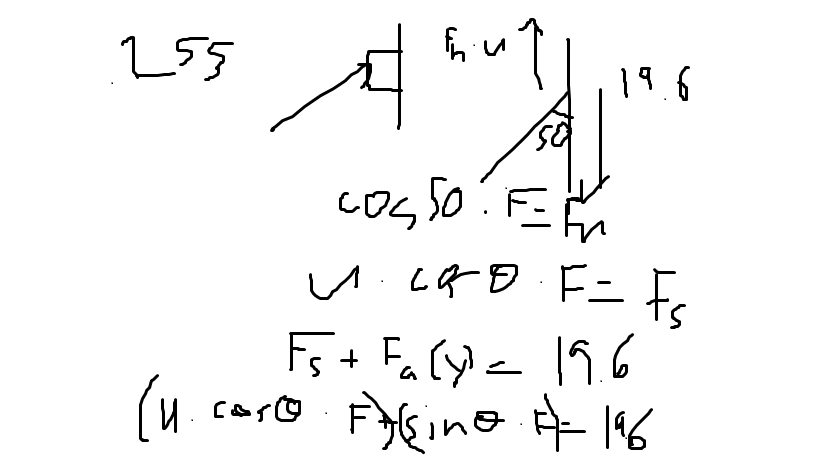 255
Fn · u
19.6
50
cos 50 · F = Fn
u · cos θ · F = Fs
Fs + Fa(y) = 19.6
(u · cos θ · F) + (sin θ · F) = 19.6